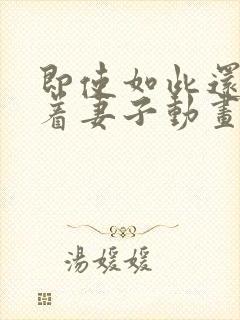 即使如此還
著妻子動畫
湯媛媛